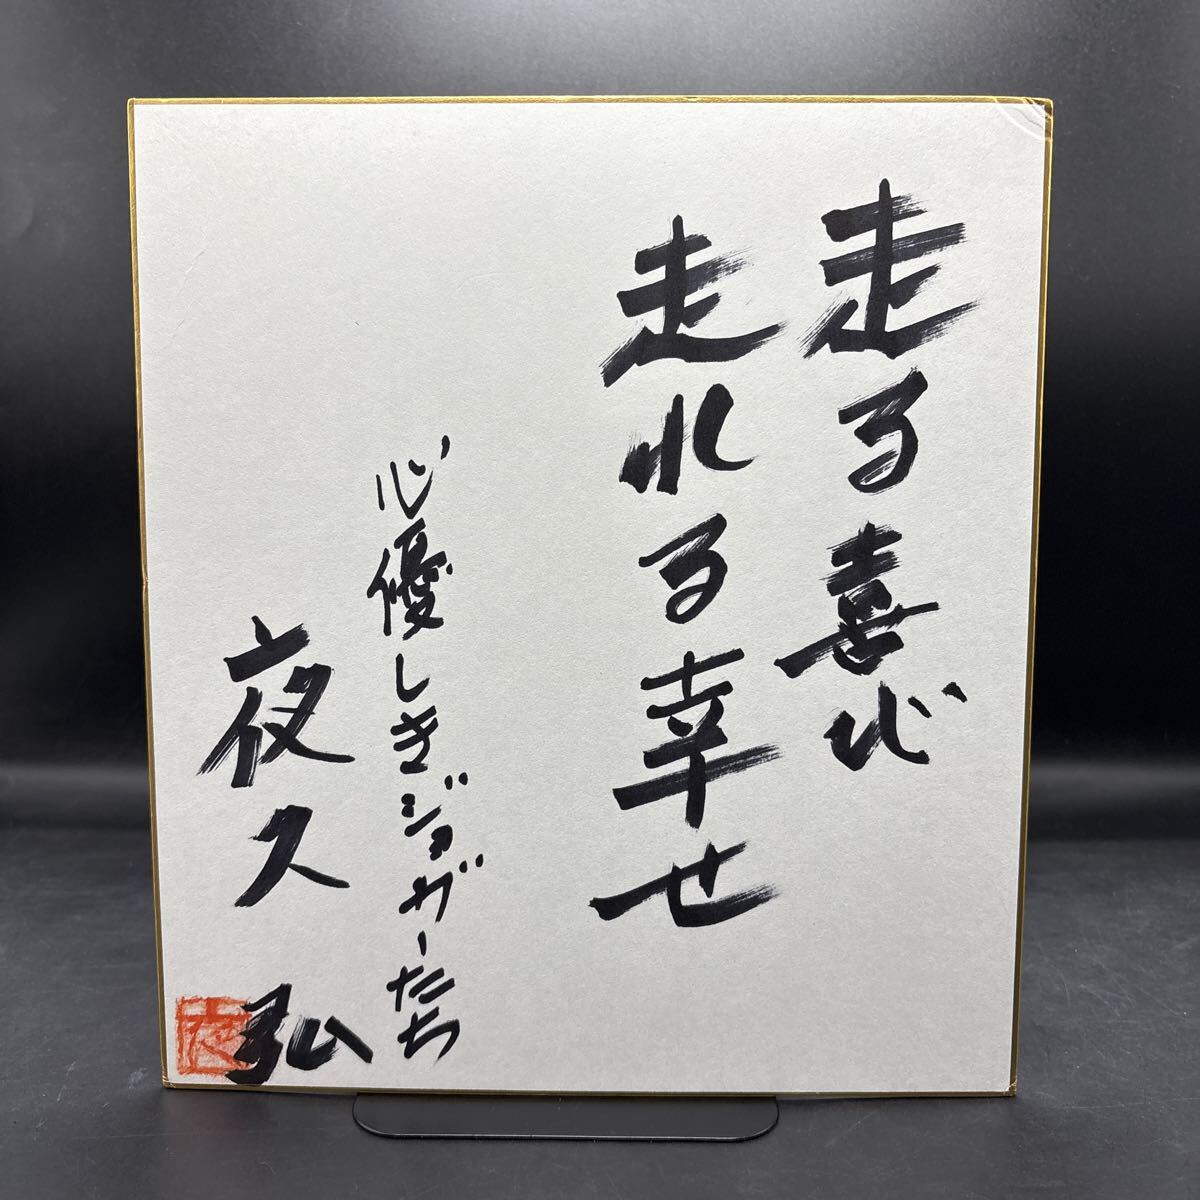 走る喜び
走れる幸せ
心優しきジョガーたち
夜久弘
夜